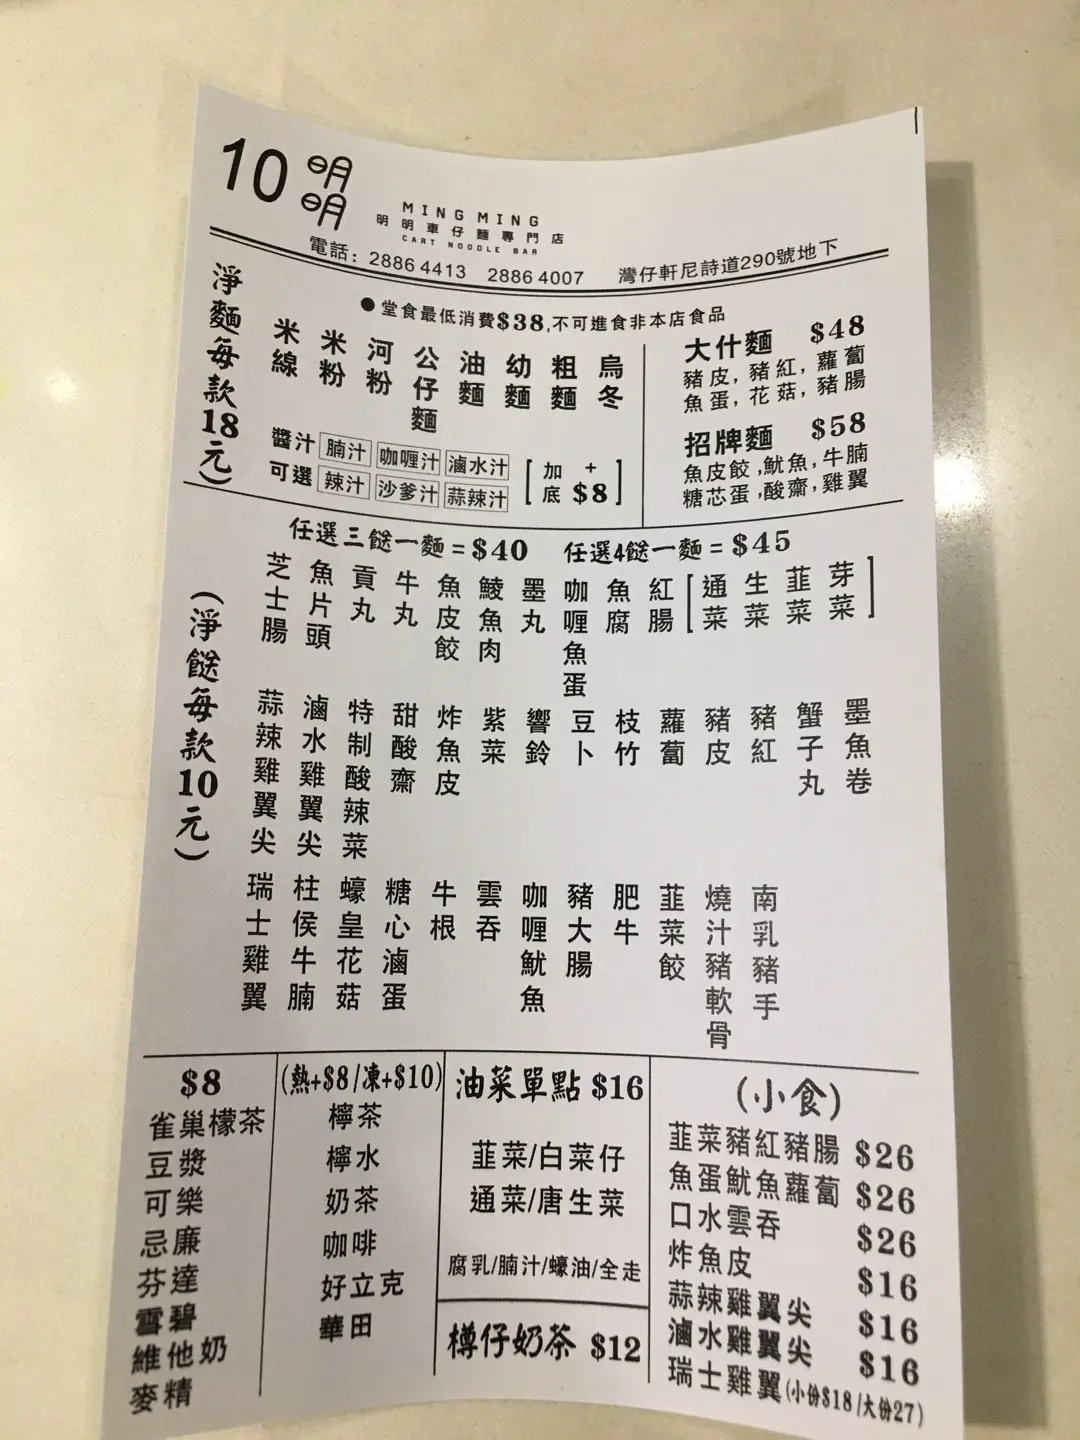 10 明明
MING MING
明明車仔麵專門店
CART NOODLE BAR
電話: 2886 4413 2886 4007 灣仔軒尼詩道290號地下
●堂食最低消費$38,不可進食非本店食品
淨麵每款18元)
米線
米粉
河粉
公仔麵
油麵
幼麵
粗麵
烏冬
醬汁可選
腩汁 咖喱汁 滷水汁
辣汁 沙爹汁 蒜辣汁
[加底 +$8]
大什麵 $48
豬皮,豬紅,蘿蔔
魚蛋,花菇,豬腸
招牌麵 $58
魚皮餃,魷魚,牛腩
糖芯蛋,酸齋,雞翼
任選三餸一麵=$40 任選4餸一麵=$45
(淨餸每款10元)
芝士腸
魚片頭
貢丸
牛丸
魚皮餃
鯪魚肉
墨丸
咖喱魚蛋
魚腐
紅腸
[通菜
生菜
韮菜
芽菜]
蒜辣雞翼尖
滷水雞翼尖
特制酸辣菜
甜酸齋
炸魚皮
紫菜
響鈴
豆卜
枝竹
蘿蔔
豬皮
豬紅
蟹子丸
墨魚卷
瑞士雞翼
柱侯牛腩
蠔皇花菇
糖心滷蛋
牛根
雲吞
咖喱魷魚
豬大腸
肥牛
韮菜餃
燒汁豬軟骨
南乳豬手
$8
雀巢檬茶
豆漿
可樂
忌廉
芬達
雪碧
維他奶
麥精
(熱+$8/凍+$10)
檸茶
檸水
奶茶
咖啡
好立克
華田
油菜單點 $16
韮菜/白菜仔
通菜/唐生菜
腐乳/腩汁/蠔油/全走
樽仔奶茶 $12
(小食)
韮菜豬紅豬腸 $26
魚蛋魷魚蘿蔔 $26
口水雲吞 $26
炸魚皮 $16
蒜辣雞翼尖 $16
滷水雞翼尖 $16
瑞士雞翼(小份$18/大份27)